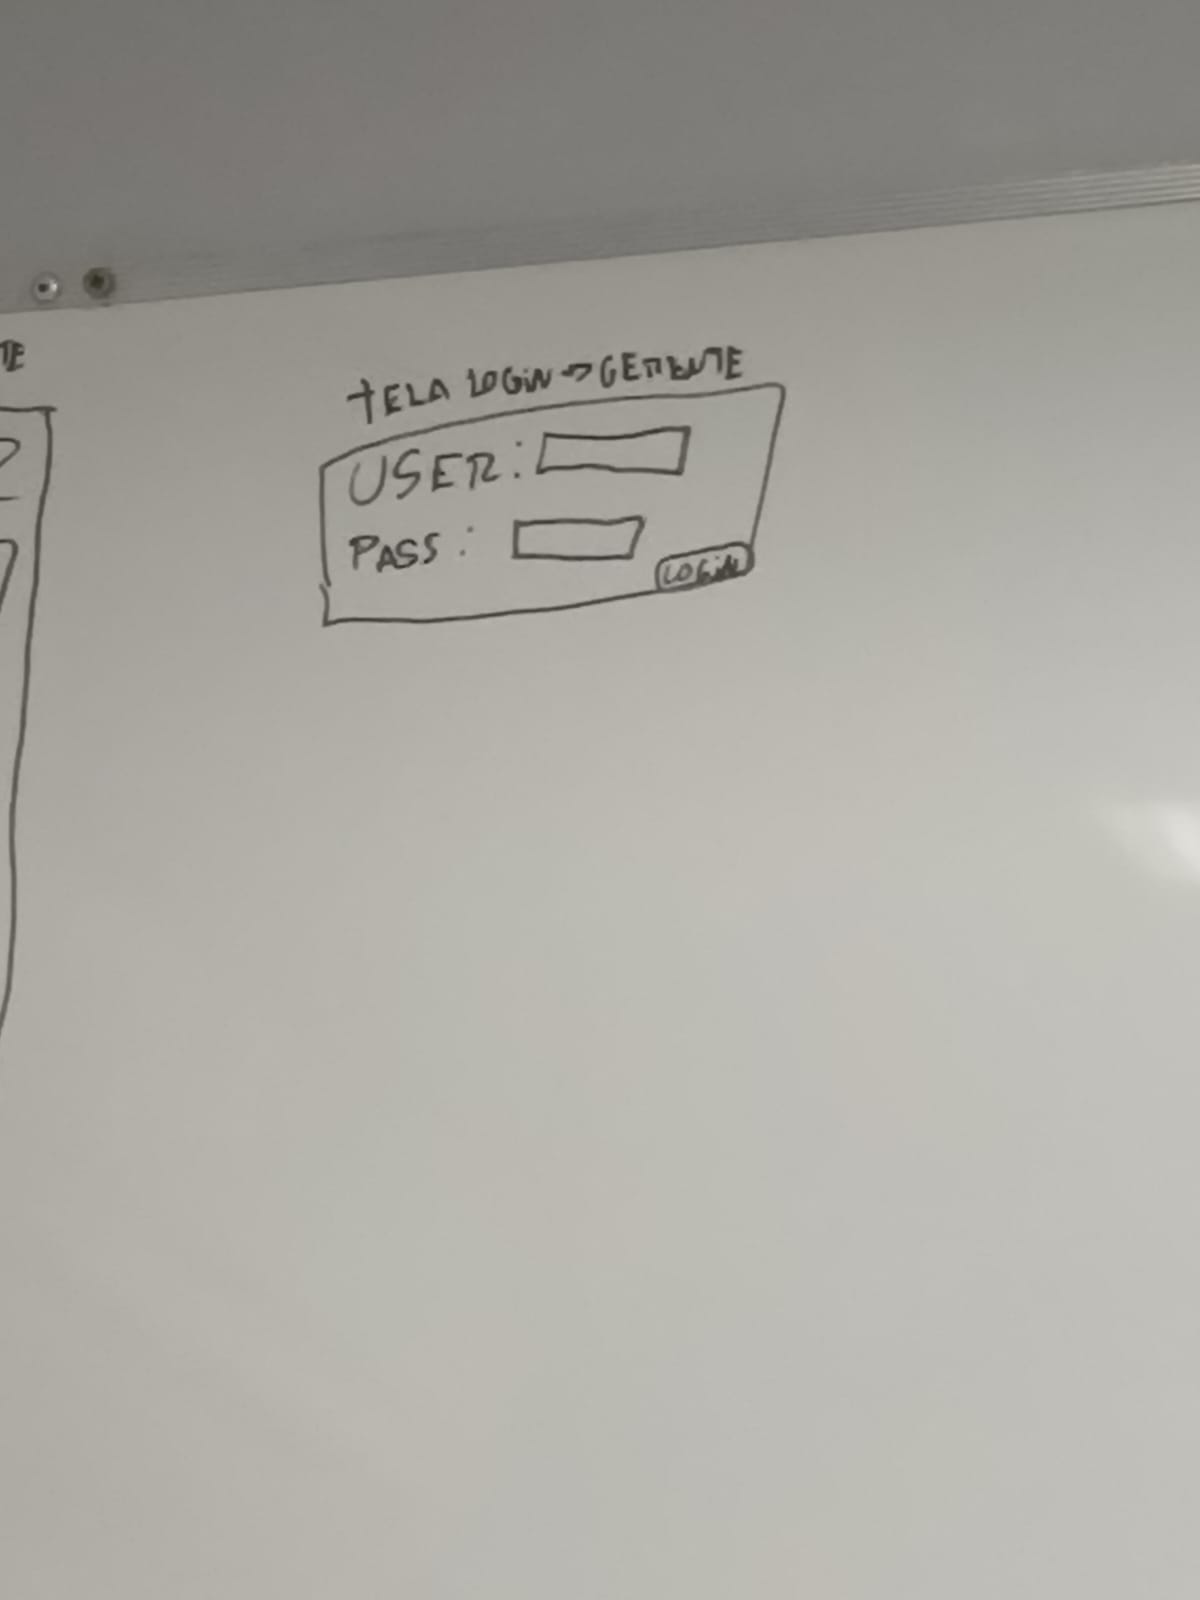 TELA LOGIN → GERENTE
USER:
PASS:
LOGIN